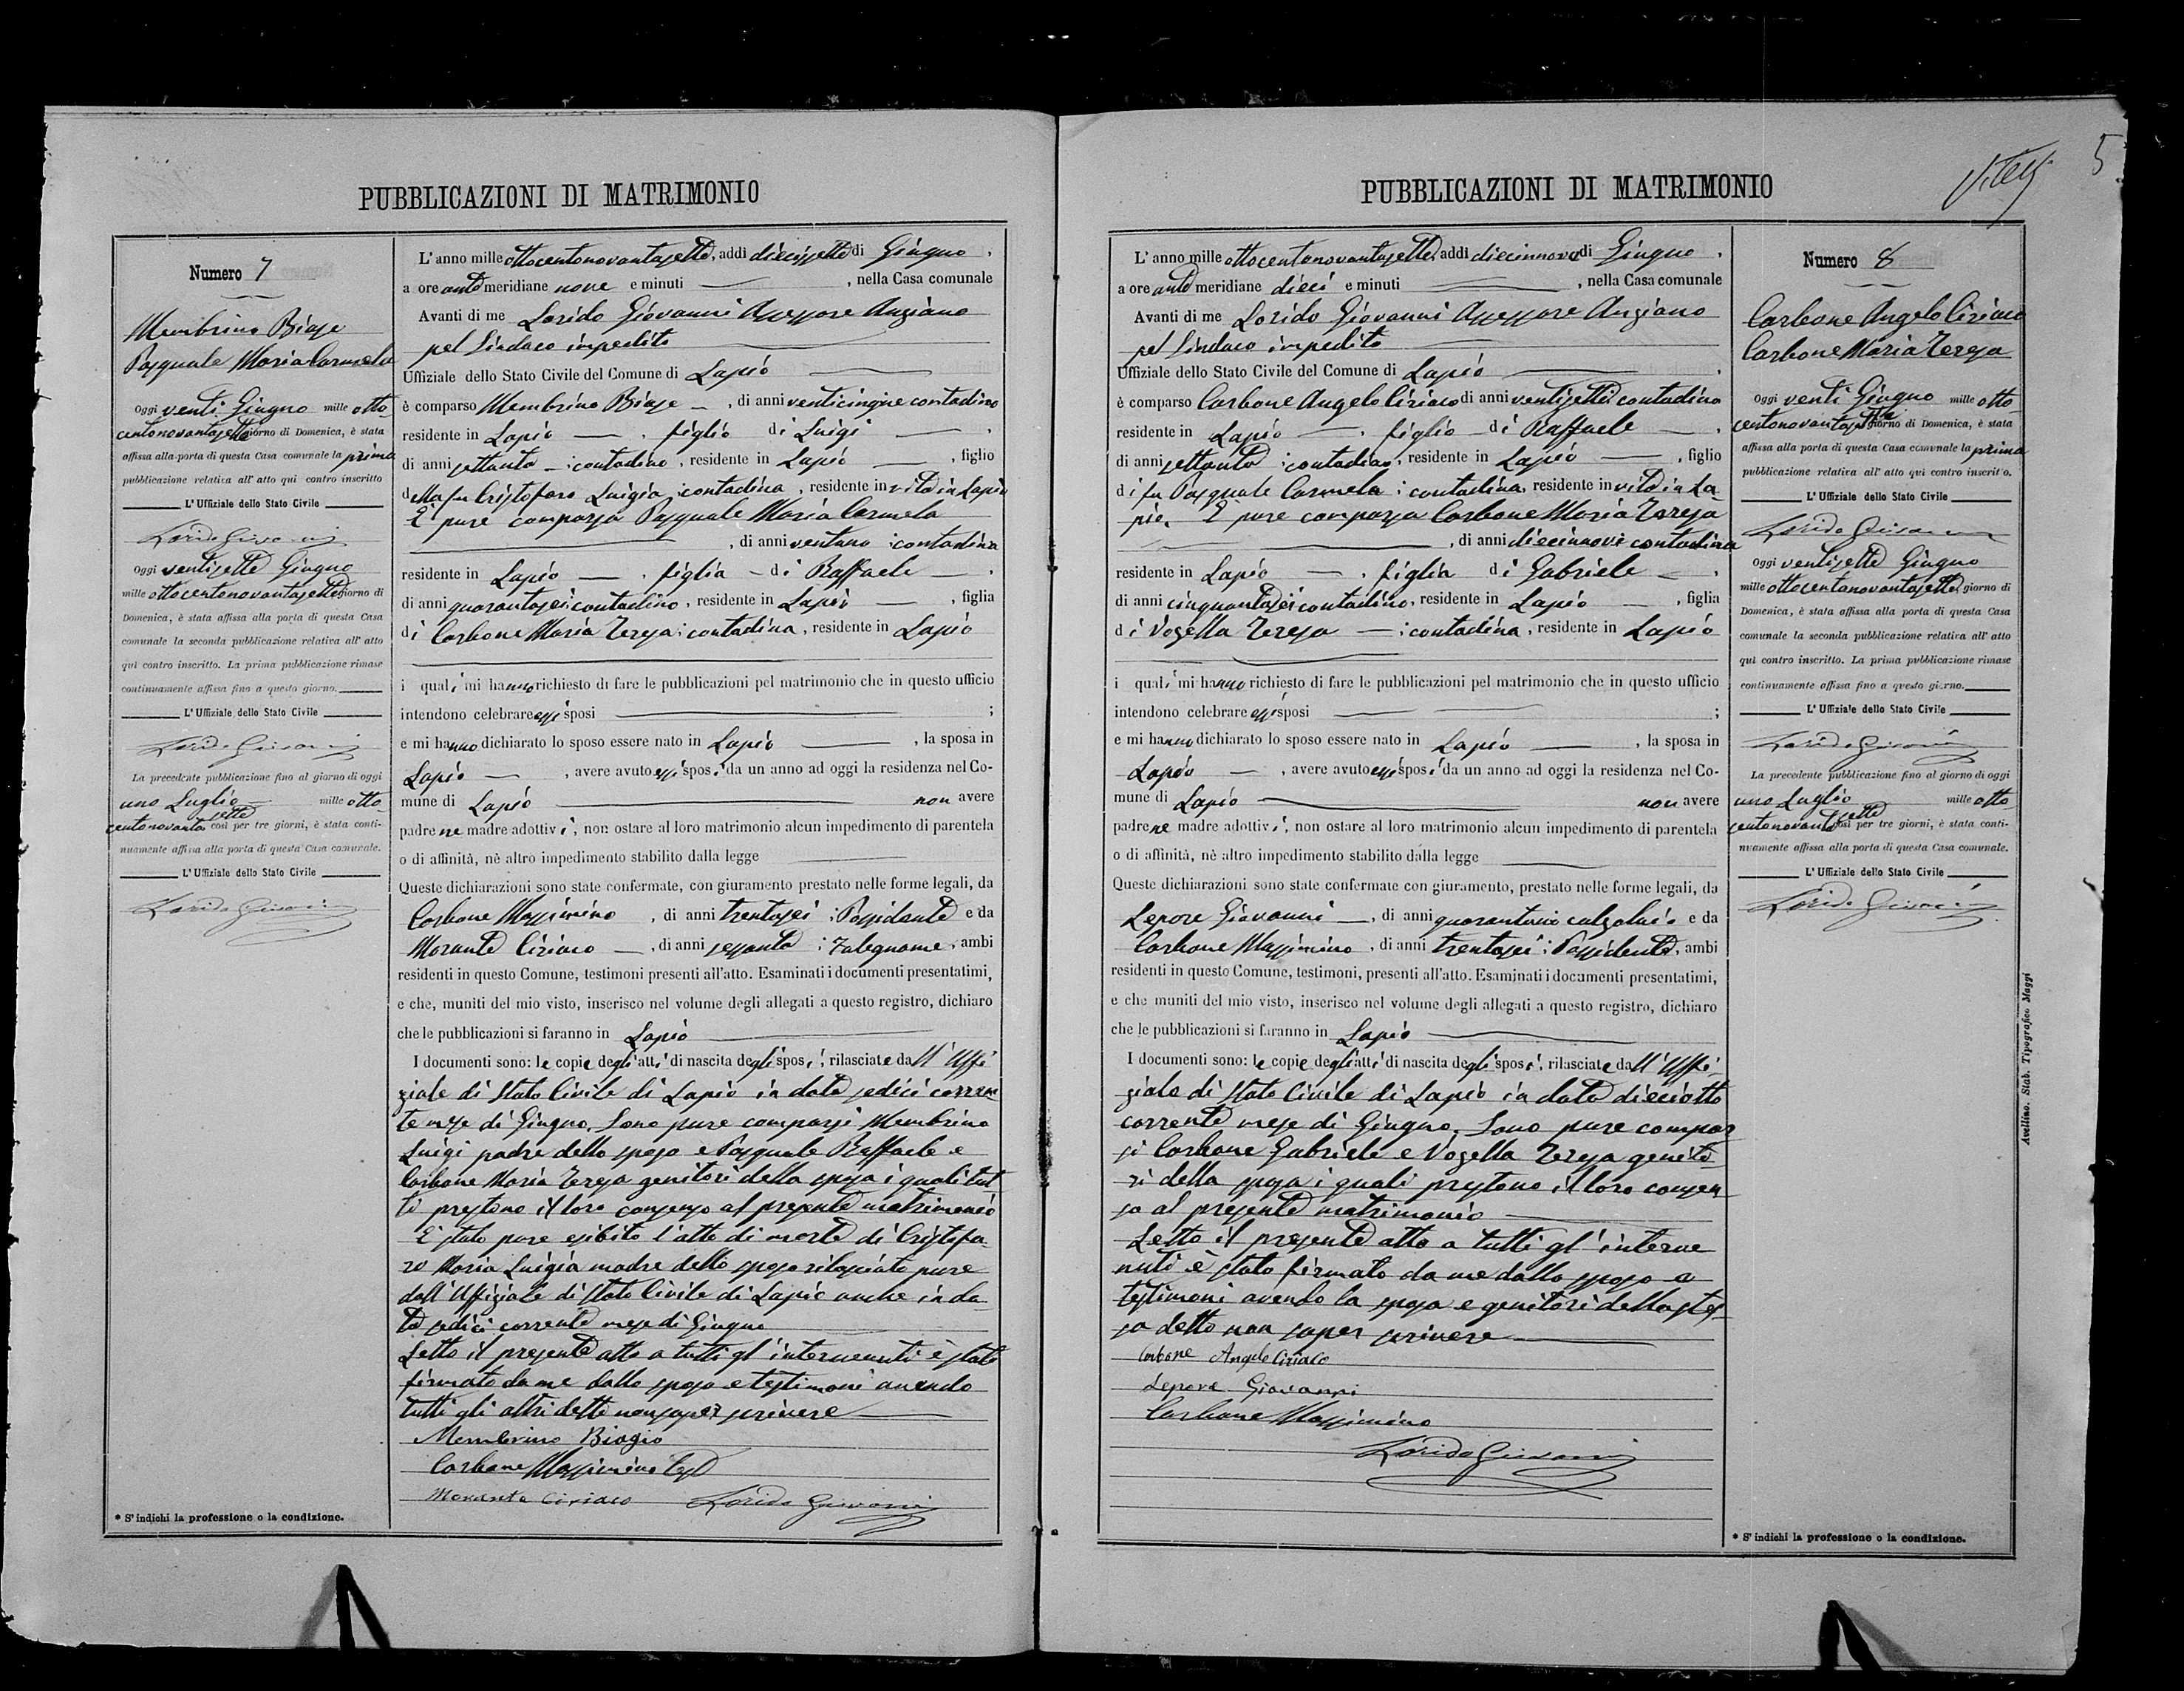 PUBBLICAZIONI DI MATRIMONIO
Numero 7
Membrino Biase
Pasquale Maria Carmela
Oggi venti Giugno mille otto-
centonovantasette giorno di Domenica, è stata
affissa alla porta di questa Casa comunale la prima
pubblicazione relativa all' atto qui contro inscritto
L' Uffiziale dello Stato Civile
Lorido Giovanni
Oggi ventisette Giugno
mille ottocentonovantasette giorno di
Domenica, è stata affissa alla porta di questa Casa
comunale la seconda pubblicazione relativa all' atto
qui contro inscritto. La prima pubblicazione rimase
continuamente affissa fino a questo giorno.
L' Uffiziale dello Stato Civile
Lorido Giovanni
La precedente pubblicazione fino al giorno di oggi
uno Luglio mille otto
centonovantasette così per tre giorni, è stata conti-
nuamente affissa alla porta di questa Casa comunale.
L' Uffiziale dello Stato Civile
Lorido Giovanni
* S' indichi la professione o la condizione.
L' anno mille ottocentonovantasette, addì diecissette di Giugno,
a ore ante meridiane nove e minuti , nella Casa comunale
Avanti di me Lorido Giovanni Assessore Anziano
pel Sindaco impedito
Uffiziale dello Stato Civile del Comune di Lapio
è comparso Membrino Biase , di anni venticinque contadino
residente in Lapio , figlio di Luigi ,
di anni settanta : contadino , residente in Lapio , figlio
della fu Cristofaro Luigia : contadina , residente in vita in Lapio
È pure comparsa Pasquale Maria Carmela
, di anni ventuno : contadina
residente in Lapio , figlia di Raffaele ,
di anni quarantasei contadino , residente in Lapio , figlia
di Carbone Maria Teresa : contadina , residente in Lapio
i quali mi hanno richiesto di fare le pubblicazioni pel matrimonio che in questo ufficio
intendono celebrare essi sposi ;
e mi hanno dichiarato lo sposo essere nato in Lapio , la sposa in
Lapio , avere avuto essi sposi da un anno ad oggi la residenza nel Co-
mune di Lapio non avere
padre ne madre adottivi, non ostare al loro matrimonio alcun impedimento di parentela
o di affinità, nè altro impedimento stabilito dalla legge
Queste dichiarazioni sono state confermate, con giuramento prestato nelle forme legali, da
Carbone Massimino , di anni trentasei : Possidente e da
Morante Ciriaco , di anni sessanta : Falegname, ambi
residenti in questo Comune, testimoni presenti all'atto. Esaminati i documenti presentatimi,
e che, muniti del mio visto, inserisco nel volume degli allegati a questo registro, dichiaro
che le pubblicazioni si faranno in Lapio
I documenti sono: le copie degli atti di nascita degli sposi, rilasciate dall' Uffi-
ziale di Stato Civile di Lapio in data sedici corren-
te mese di Giugno. Sono pure comparsi Membrino
Luigi padre dello sposo e Pasquale Raffaele e
Carbone Maria Teresa genitori della sposa i quali tut
ti prestono il loro consenso al presente matrimonio
È stato pure esibito l'atto di morte di Cristofa-
ro Maria Luigia madre dello sposo rilasciato pure
dall'Uffiziale di Stato Civile di Lapio anche in da-
ta sedici corrente mese di Giugno
Letto il presente atto a tutti gl' intervenuti è stato
firmato da me dallo sposo e testimoni avendo
tutti gli altri detto non saper scrivere
Membrino Biagio
Carbone Massimino test
Morante Ciriaco Lorido Giovanni
PUBBLICAZIONI DI MATRIMONIO
5
L' anno mille ottocentonovantasette addì diecinnove di Giugno ,
a ore ante meridiane dieci e minuti , nella Casa comunale
Avanti di me Lorido Giovanni Assessore Anziano
pel Sindaco impedito
Uffiziale dello Stato Civile del Comune di Lapio ,
è comparso Carbone Angelo Ciriaco di anni ventisette contadino
residente in Lapio , figlio di Raffaele ,
di anni settanta : contadino, residente in Lapio , figlio
di fu Pasquale Carmela : contadina, residente in vita in La-
pio. È pure comparsa Carbone Maria Teresa
, di anni diecinnove contadina
residente in Lapio , figlia di Gabriele ,
di anni cinquantasei contadino, residente in Lapio , figlia
di Vogella Teresa : contadina, residente in Lapio
i quali mi hanno richiesto di fare le pubblicazioni pel matrimonio che in questo ufficio
intendono celebrare essi sposi ;
e mi hanno dichiarato lo sposo essere nato in Lapio , la sposa in
Lapio , avere avuto essi sposi da un anno ad oggi la residenza nel Co-
mune di Lapio non avere
padre ne madre adottivi, non ostare al loro matrimonio alcun impedimento di parentela
o di affinità, nè altro impedimento stabilito dalla legge
Queste dichiarazioni sono state confermate con giuramento, prestato nelle forme legali, da
Lepore Giovanni , di anni quarantuno calzolaio e da
Carbone Massimino , di anni trentasei : Possidente, ambi
residenti in questo Comune, testimoni, presenti all'atto. Esaminati i documenti presentatimi,
e che muniti del mio visto, inserisco nel volume degli allegati a questo registro, dichiaro
che le pubblicazioni si faranno in Lapio
I documenti sono: le copie degli atti di nascita degli sposi, rilasciate dall' Uffi-
ziale di Stato Civile di Lapio in data dieciotto
corrente mese di Giugno. Sono pure compar
si Carbone Gabriele e Vogella Teresa genito-
ri della sposa i quali prestono il loro consen-
so al presente matrimonio
Letto il presente atto a tutti gl' interve
nuti è stato firmato da me dallo sposo e
testimoni avendo la sposa e genitori della stes-
sa detto non saper scrivere
Carbone Angelo Ciriaco
Lepore Giovanni
Carbone Massimino
Lorido Giovanni
Numero 8
Carbone Angelo Ciriaco
Carbone Maria Teresa
Oggi venti Giugno mille otto-
centonovantasette giorno di Domenica, è stata
affissa alla porta di questa Casa comunale la prima
pubblicazione relativa all' atto qui contro inscritto.
L' Uffiziale dello Stato Civile
Lorido Giovanni
Oggi ventisette Giugno
mille ottocentonovantasette giorno di
Domenica, è stata affissa alla porta di questa Casa
comunale la seconda pubblicazione relativa all' atto
qui contro inscritto. La prima pubblicazione rimase
continuamente affissa fino a questo giorno.
L' Uffiziale dello Stato Civile
Lorido Giovanni
La precedente pubblicazione fino al giorno di oggi
uno Luglio mille otto
centonovantasette così per tre giorni, è stata conti-
nuamente affissa alla porta di questa Casa comunale.
L' Uffiziale dello Stato Civile
Lorido Giovanni
* S' indichi la professione o la condizione.
Avellino. Stab. Tipografico Maggi